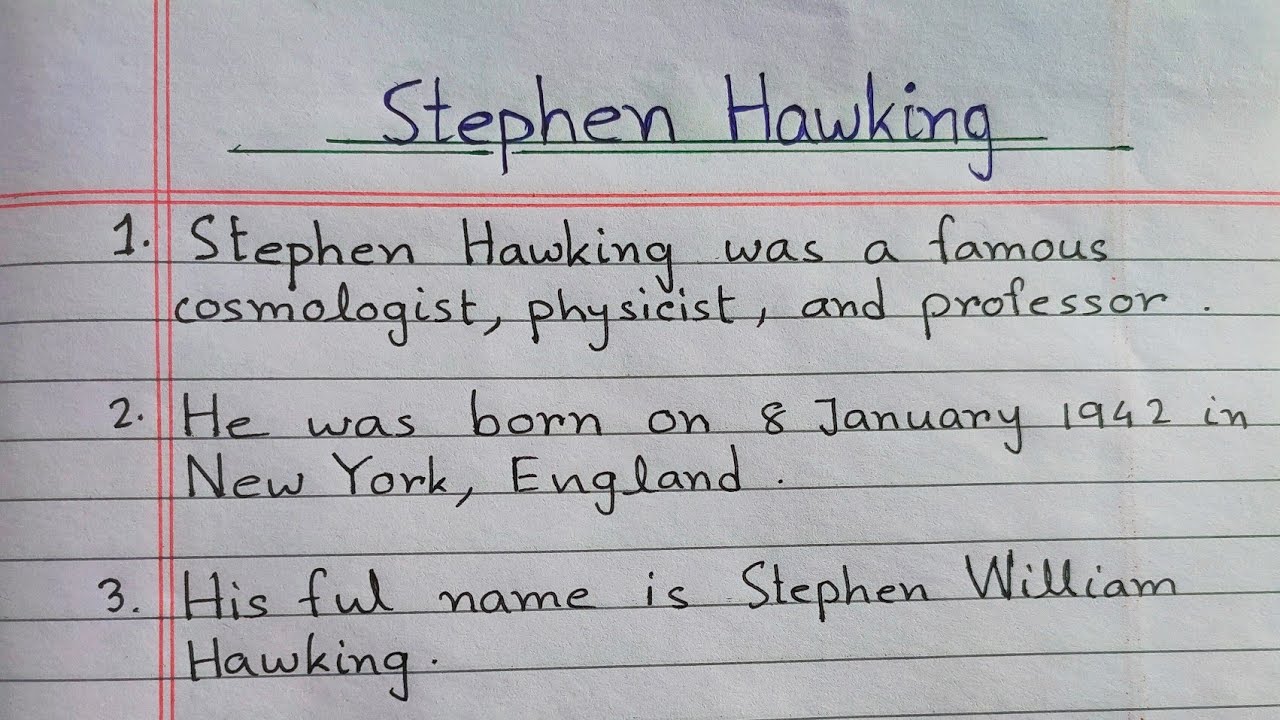 Stephen Hawking
1. Stephen Hawking was a famous
cosmologist, physicist, and professor.
2. He was born on 8 January 1942 in
New York, England.
3. His ful name is Stephen William
Hawking.